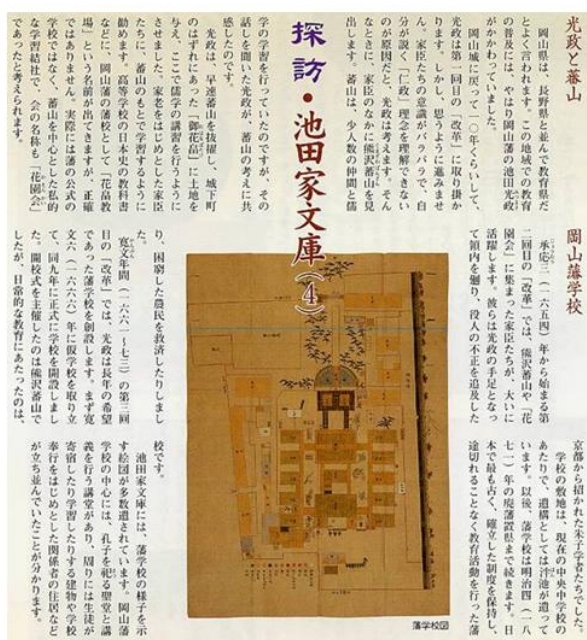 光政と蕃山
岡山県は、長野県と並んで教育県だ
とよく言われます。この地域での教育
の普及には、やはり岡山藩の池田光政
がかかわっていました。
岡山城に戻って一〇年くらいして、
光政は第一回目の「改革」に取り掛か
ります。しかし、思うように進みませ
ん。家臣たちの意識がバラバラで、自
分が説く「仁政」理念を理解できない
のが原因だと、光政は考えます。そん
なときに、家臣のなかに熊沢蕃山を見
出します。蕃山は、少人数の仲間と儒
探訪・池田家文庫(4)
学の学習を行っていたのですが、その
話しを聞いた光政が、蕃山の考えに共
感したのです。
光政は、早速蕃山を抜擢し、城下町
のはずれにあった「御花畠」に土地を
与え、ここで儒学の講習を行うように
させました。家老をはじめとした家臣
たちに、蕃山のもとで学習するように
勧めます。高等学校の日本史の教科書
などに、岡山藩の藩校として「花畠教
場」という名前が出てきますが、正確
ではありません。実際には藩の公式の
学校ではなく、蕃山を中心とした私的
な学習結社で、会の名称も「花園会」
であったと考えられます。
岡山藩学校
承応三(一六五四)年から始まる第
二回目の「改革」では、熊沢蕃山や「花
園会」に集まった家臣たちが、大いに
活躍します。彼らは光政の手足となっ
て領内を廻り、役人の不正を追及した
り、困窮した農民を救済したりしまし
た。
寛文年間(一六六一〜七三)の第三回
目の「改革」では、光政は長年の希望
であった藩学校を創設します。まず寛
文六(一六六六)年に仮学校を取り立
て、同九年に正式に学校を開設しまし
た。開校式を主催したのは熊沢蕃山で
したが、日常的な教育にあたったのは、
京都から招かれた朱子学者たちでした。
学校の敷地は、現在の中央中学校の
あたりで、遺構としては泮池が遺って
います。以後、藩学校は明治四(一八
七一)年の廃藩置県まで続きます。日
本で最も古く、確立した制度を保持し、
途切れることなく教育活動を行った藩
校です。
池田家文庫には、藩学校の様子を示
す絵図が多数遺されています。岡山藩
学校の中心には、孔子を祀る聖堂と講
義を行う講堂があり、周りには生徒が
寄宿したり学習したりする建物や学校
奉行をはじめとした関係者の住居など
が立ち並んでいたことが分かります。
藩学校図